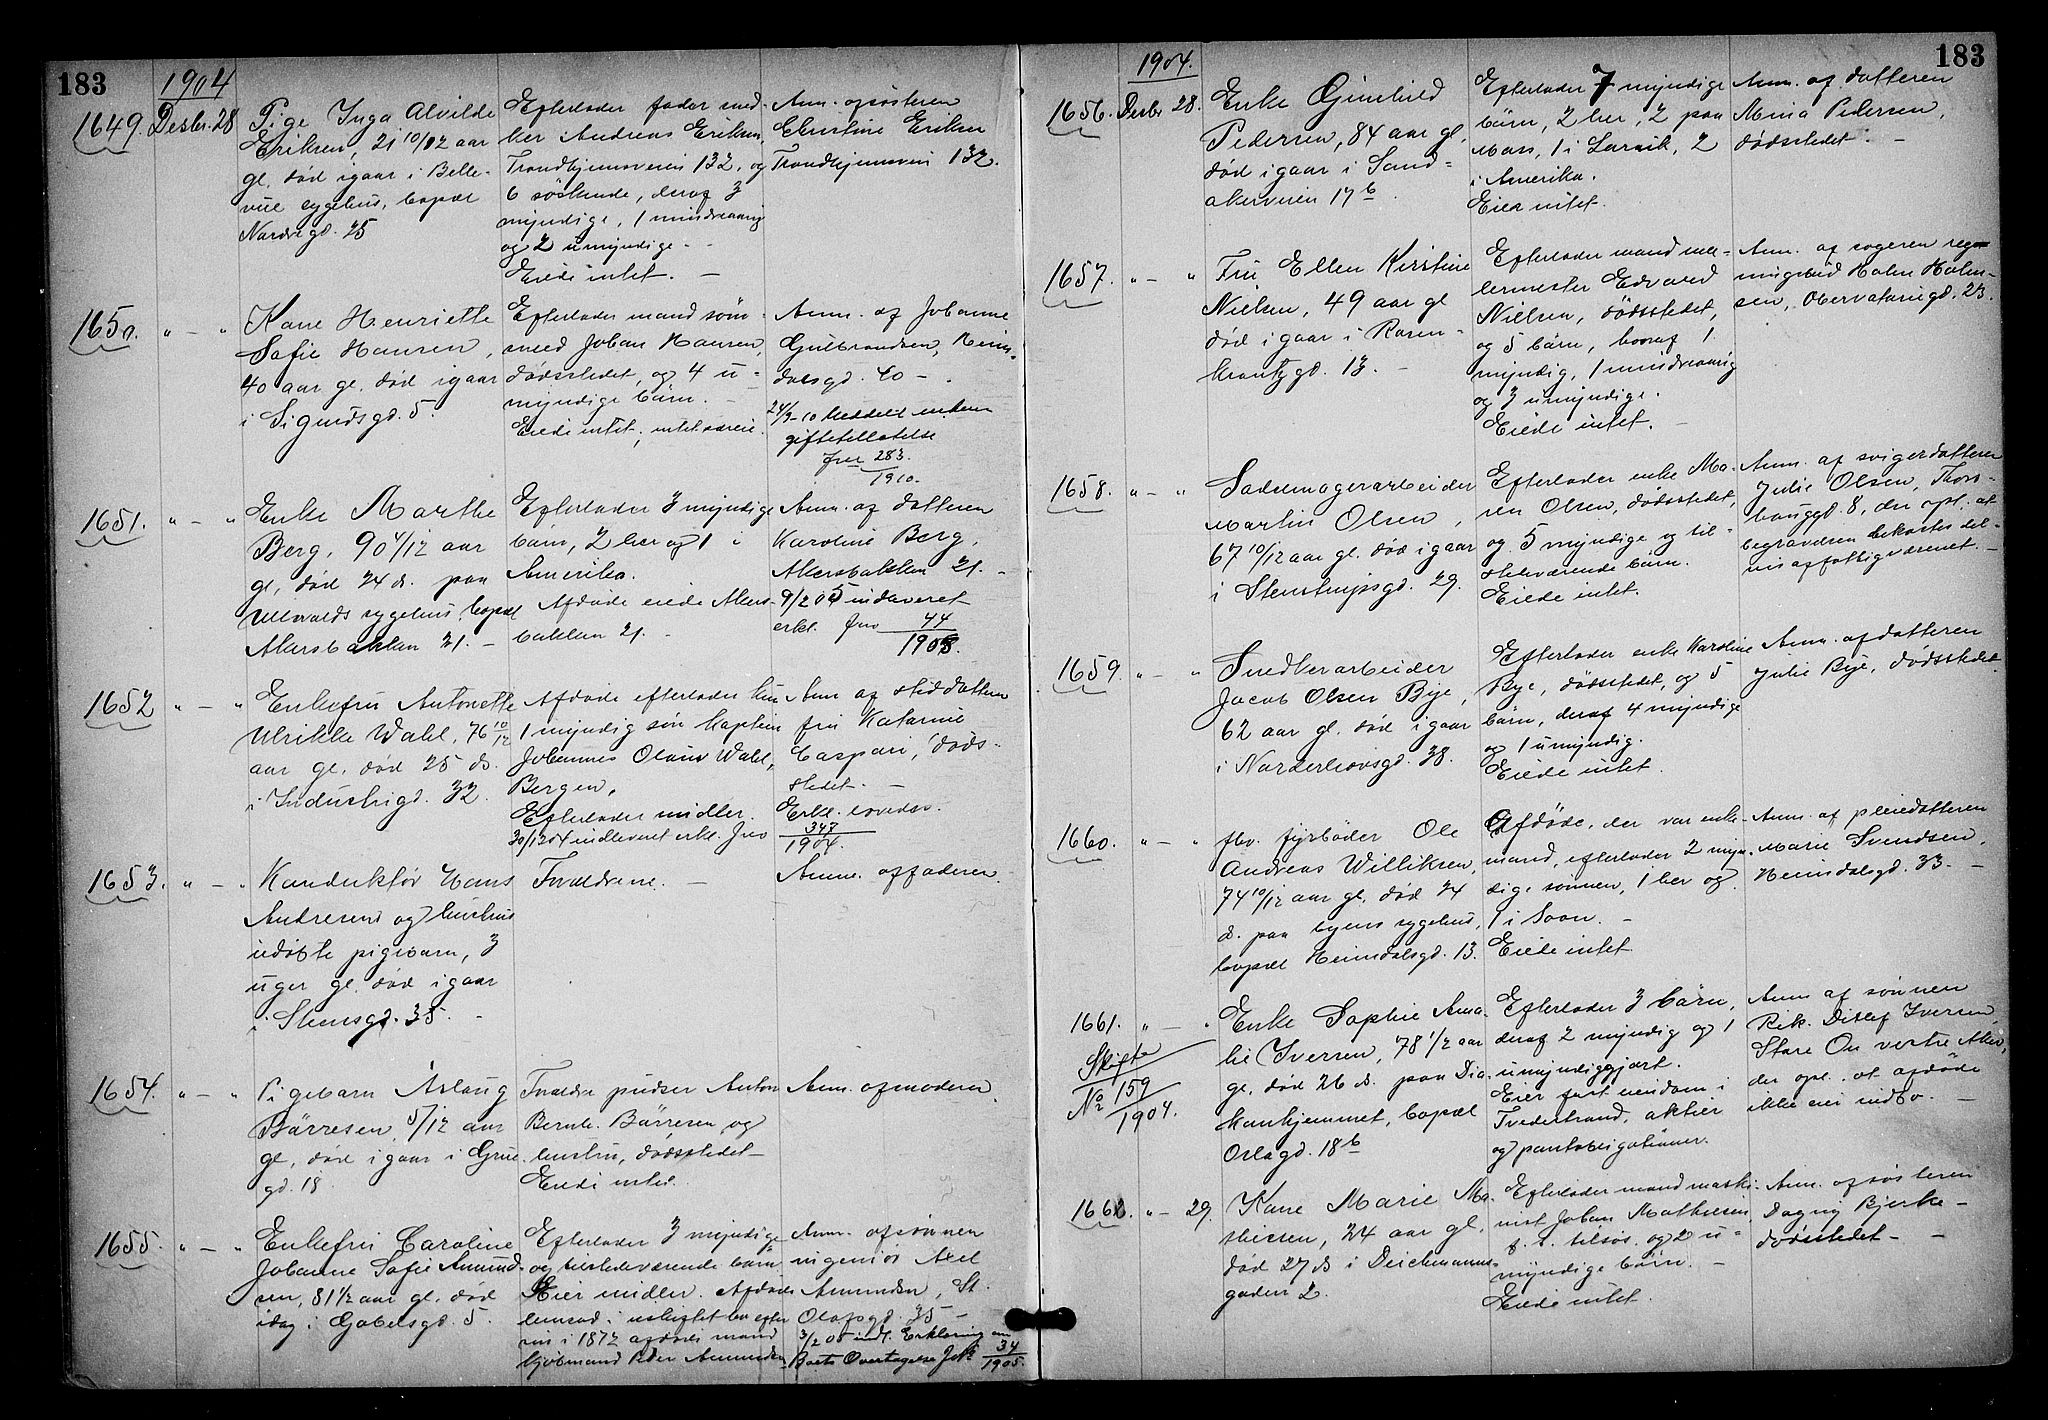 183
1904
1649. Desbr. 28
Pige Inga Alvilde
Eriksen, 21 10/12 aar
gl. død igaar i Belle-
vue sygehus, bopæl
Nordregd. 25
Efterlader fader sned-
ker Andreas Eriksen,
Trondhjemsveien 132, og
6 söskende, deraf 3
myndige, 1 mindreaarig
og 2 umyndige. -
Eiede intet. -
Anm. af søsteren
Christine Eriksen
Trondhjemsvei 132.
1650. " - "
Kone Henriette
Sofie Hansen,
40 aar gl. død igaar
i Sigurdsgd. 5.
Efterlader mand söm-
smed Johan Hansen,
dødsstedet, og 4 u-
myndige börn. -
Eiede intet, intet særeie.
Anm. af Johanne
Gulbrandsen, Heim-
dalsgd. 40 -
24/9-10 meddelt enkem.
giftetilladelse
Jnr 283.
1910.
1651. " - "
Enke Marthe
Berg, 90 4/12 aar
gl, død 24 ds. paa
Ullevolds sygehus, bopæl
Akersbakken 21. -
Efterlader 3 myndige
börn, 2 her og 1 i
Amerika.
Afdøde eiede Akers-
bakken 21. -
Anm. af datteren
Karoline Berg,
Akersbakken 21. -
9/2 05 indleveret
erkl. Jno 44
1905.
1652 " - "
Enkefru Antonette
Ulrikke Wahl, 76 10/12
aar gl. død 25 ds.
i Industrigd. 32.
Afdøde efterlader kun
1 myndig søn kaptein
Johannes Olaus Wahl,
Bergen,
Efterlader midler.
30/12 04 indleveret erkl. Jno
Anm af stiddatteren
fru Katarine
Caspari, døds-
stedet. -
Erkl.
347
1904.
1653. " - "
Konduktör Hans
Andresens og hustrus
udøbte pigebarn, 3
uger gl. død igaar
i Stensgd. 35. -
Forældrene. -
Anm. af faderen.
1654. " - "
Pigebarn Aslaug
Börresen, 5/12 aar
gl, død igaar i Grue-
gd. 18
Forældre pudser Anton
Bernh. Börresen og
hustru, dødsstedet -
Eiede intet.
Anm. af moderen.
1655. " - "
Enkefru Caroline
Johanne Sofie Amund-
sen, 81 1/2 aar gl. død
idag i Gabelsgd. 5.
Efterlader 3 myndige
og tilstedeværende börn
Eier midler. Afdøde
hensad i uskiftet bo efter
sin i 1872 afdøde mand
kjöbmand Peder Amundsen
Anm. af sønnen
ingeniör Axel
Amundsen, St.
Olafsgd. 35 -
3/2 05 indl. Erklæring om
Boets Overtagelse J.No 34
1905.
183
1904.
1656. Desbr 28.
Enke Gunhild
Pedersen, 84 aar gl,
død igaar i Sand-
akerveien 17 b
Efterlader 7 myndige
börn, 2 her, 2 paa
Moss, 1 i Larvik, 2
i Amerika.
Eier intet.
Anm. af datteren
Mina Pedersen,
dødsstedet. -
1657. " - "
Fru Ellen Kirstine
Nielsen, 49 aar gl
død igaar i Rosen-
krantzgd. 13. -
Efterlader mand ma-
lermester Edvard
Nielsen, dødsstedet,
og 5 börn, hvoraf 1
myndig, 1 mindreaarig
og 3 umyndige.
Eiede intet. -
Anm. af svogeren
Holm Holm-
sen, Observatoriegd. 23.
1658. " - "
Sadelmagerarbeider
Martin Olsen,
67 10/12 aar gl. død igaar
i Stenstrupsgd. 29.
Efterlader enke Ma-
ren Olsen, dødsstedet,
og 5 myndige og til-
stedeværende börn.
Eiede intet.
Anm. af svigerdatteren
Julie Olsen, Thors-
haugd. 8, der opl. at
begravelsen bekostes del-
vis af fattigvæsenet. -
1659. " - "
Snedkerarbeider
Jacob Olsen Bye,
62 aar gl. død igaar
i Norderhovsgd. 38.
Efterlader enke Karoline
Bye, dødsstedet, og 5
börn, deraf 4 myndige
og 1 umyndig.
Eiede intet.
Anm. af datteren
Julie Bye, dødsstedet
1660. " - "
fhv. fyrbøder Ole
Andreas Williksen,
74 10/12 aar gl. død 24
ds. paa byens sygehus,
bopæl Heimdalsgd. 13.
Afdøde, der var enke-
mand, efterlader 2 myn-
dige sønner, 1 her og
1 i Soon. -
Eiede intet
Anm. af pleiedatteren
Marie Svendsen,
Heimdalsgd. 33. -
1661. " - "
Skifte
No 159
1904.
Enke Sophie Ama-
lie Iversen, 78 1/2 aar
gl, død 26 ds. paa Dia-
konhjemmet, bopæl
Oslogd. 18 b
Efterlader 3 börn,
deraf 2 myndig og 1
umyndiggjort.
Eier fast eiendom i
Tvedestrand, aktier
og pantobligationer.
Anm af sønnen
Rik. Ditlef Iversen,
Store On vestre Aker,
der opl. at afdøde
ikke eier indbo. -
1662. " - 29.
Kone Marie Ma-
thiesen, 24 aar gl,
død 27 ds i Deichmanns-
gaden 2.
Efterlader mand maski-
nist Johan Mathiesen,
f. t. tilsøs, og 2 u-
myndige börn. -
Eiede intet.
Anm. af søsteren
Dagny Bjerke -
dødsstedet - -